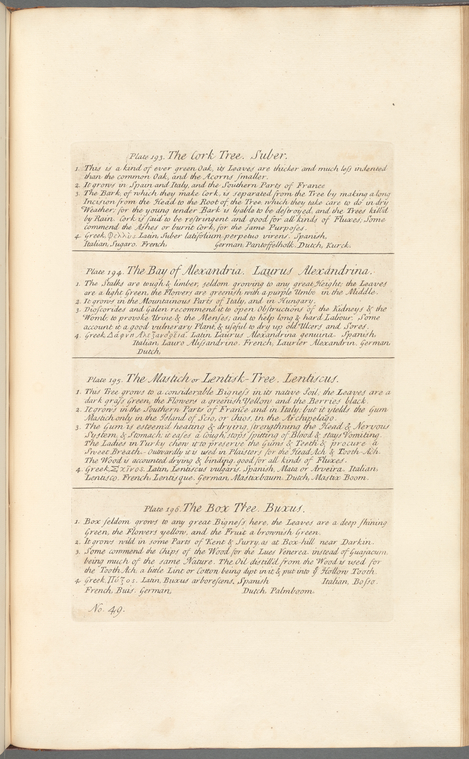 Plate 193. The Cork Tree. Suber.
1. This is a kind of ever green Oak, its Leaves are thicker and much less indented
than the common Oak, and the Acorns smaller.
2. It grows in Spain and Italy, and the Southern Parts of France
3. The Bark, of which they make Cork, is separated from the Tree by making a long
Incision from the Head to the Root of the Tree, which they take care to do in dry
Weather; for the young under Bark is lyable to be destroyed, and the Trees kill'd
by Rain. Cork is said to be restringent and good for all kinds of Fluxes, Some
commend the Ashes or burnt Cork, for the same Purposes.
4. Greek, Latin, Suber latifolium perpetuo virens. Spanish,
Italian, Sugaro. French German, Pantoffelholk, Dutch, Kurck.
Plate 194. The Bay of Alexandria. Laurus Alexandrina.
1. The Stalks are tough & limber, seldom growing to any great Height; the Leaves
are a light Green, the Flowers are greenish, with a purple Umbo in the Middle.
2. It grows in the Mountainous Parts of Italy, and in Hungary.
3. Dioscorides and Galen recommend it to open Obstructions of the Kidneys & the
Womb, to provoke Urine & the Menses, and to help long & hard Labour. Some
account it a good vulnerary Plant, & useful to dry up old Ulcers and Sores.
4. Greek, Latin, Laurus Alexandrina genuina. Spanish,
Italian, Lauro Alessandrino. French, Laurier Alexandrin. German
Dutch,
Plate 195. The Mastich or Lentisk-Tree. Lentiscus.
1. This Tree grows to a considerable Bigness in its native Soil, the Leaves are a
dark grass Green, the Flowers a greenish Yellow, and the Berries black.
2. It grows in the Southern Parts of France and in Italy, but it yields the Gum
Mastich only in the Island of Scio, or Chios, in the Archipelago.
3. The Gum is esteem'd healing & drying, strengthning the Head & Nervous
System, & Stomach; it eases a Cough, stops spitting of Blood & stays Vomiting.
The Ladies in Turky chew it to preserve the Gums & Teeth & procure a
Sweet Breath. Outwardly it is used in Plaisters for the Head Ach & Tooth Ach.
The Wood is accounted drying & binding, good for all kinds of Fluxes.
4. Greek, Σχῖνος. Latin, Lentiscus vulgaris. Spanish, Mata or Arveira. Italian
Lentisco, French, Lentisque. German, Mastixbaum. Dutch, Mastix Boom.
Plate 196. The Box Tree. Buxus.
1. Box seldom grows to any great Bigness here, the Leaves are a deep shining
Green, the Flowers yellow, and the Fruit a brownish Green.
2. It grows wild in some Parts of Kent & Surry, as at Box-hill near Darkin.
3. Some commend the Chips of the Wood for the Lues Venerea, instead of Guajacum
being much of the same Nature. The Oil distill'd from the Wood is used for
the Tooth Ach, a little Lint or Cotton being dipt in it, & put into ye Hollow Tooth.
4. Greek, Πύξος. Latin, Buxus arborescens, Spanish Italian, Bosso.
French, Buis. German, Dutch, Palmboom.
No. 49.